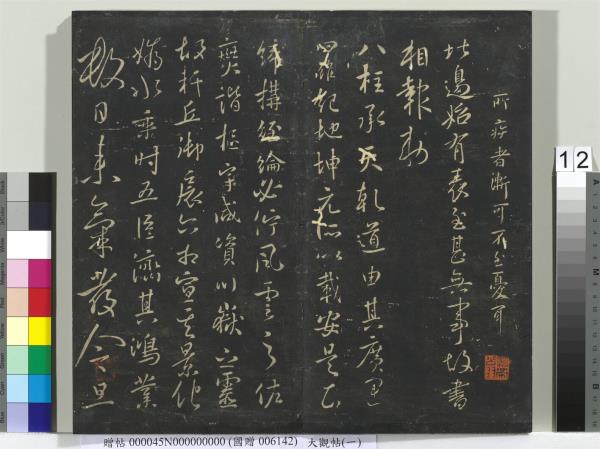 所疾者漸可不至憂耳
比邊始有表至甚無事故書
相報敕
八柱承天乾道由其廣運
紀地坤元所以載安是知
締構經綸必佇風雲之佐
燮諧樞宰咸資川嶽之靈
故軒丘御辰六相宣其景化
媯水乘時五臣濟其鴻業
數日來氣發旦
12
贈帖 000045N000000000 (國贈 006142) 大觀帖(一)